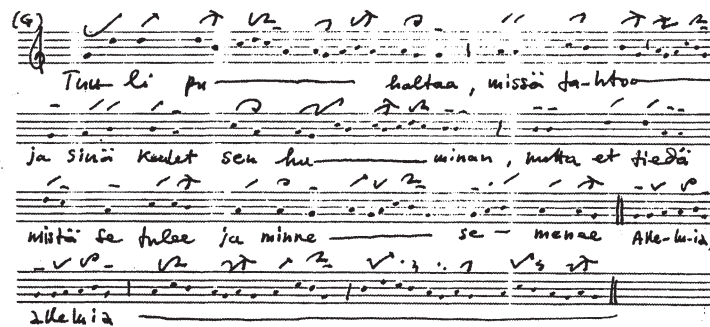 (G)
Tuu-li pu — haltaa, missä ta-htoo —
ja sinä kuulet sen hu — minan, mutta et tiedä
mistä se tulee ja minne — se — menee Alle-lu-ia,
alleluia —